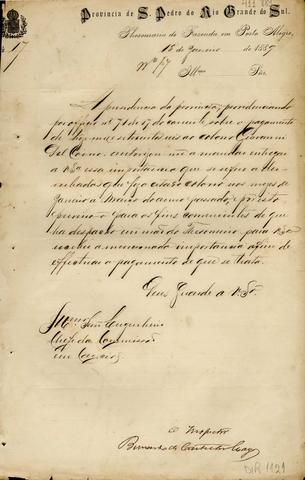 411 186
Provincia de S. Pedro do Rio Grande do Sul.
17
Thesouraria de Fazenda em Porto Alegre,
18 de Janeiro de 1889
Nº 17
Illmo Snr.
A presidencia da provincia, providenciando
por officio nº 71 de 17 do corrente sobre o pagamento
de mil setecentos reis ao colono Giovanni
Dal Corno, autorizou-me a mandar entregar
a V. Sª essa importancia que se refere a
esse colono nos mezes de
Janeiro a Março do anno passado, e por isto
para os fins convenientes de que
ha despacho em mão do Thesoureiro, para V. Sª
receber a mencionada importancia afim de
effectuar o pagamento de que se trata.
Deus Guarde a V. Sª
Illmo Snr Engenheiro
Chefe da Commissão
em Caxias
O Inspector
DIR 1121